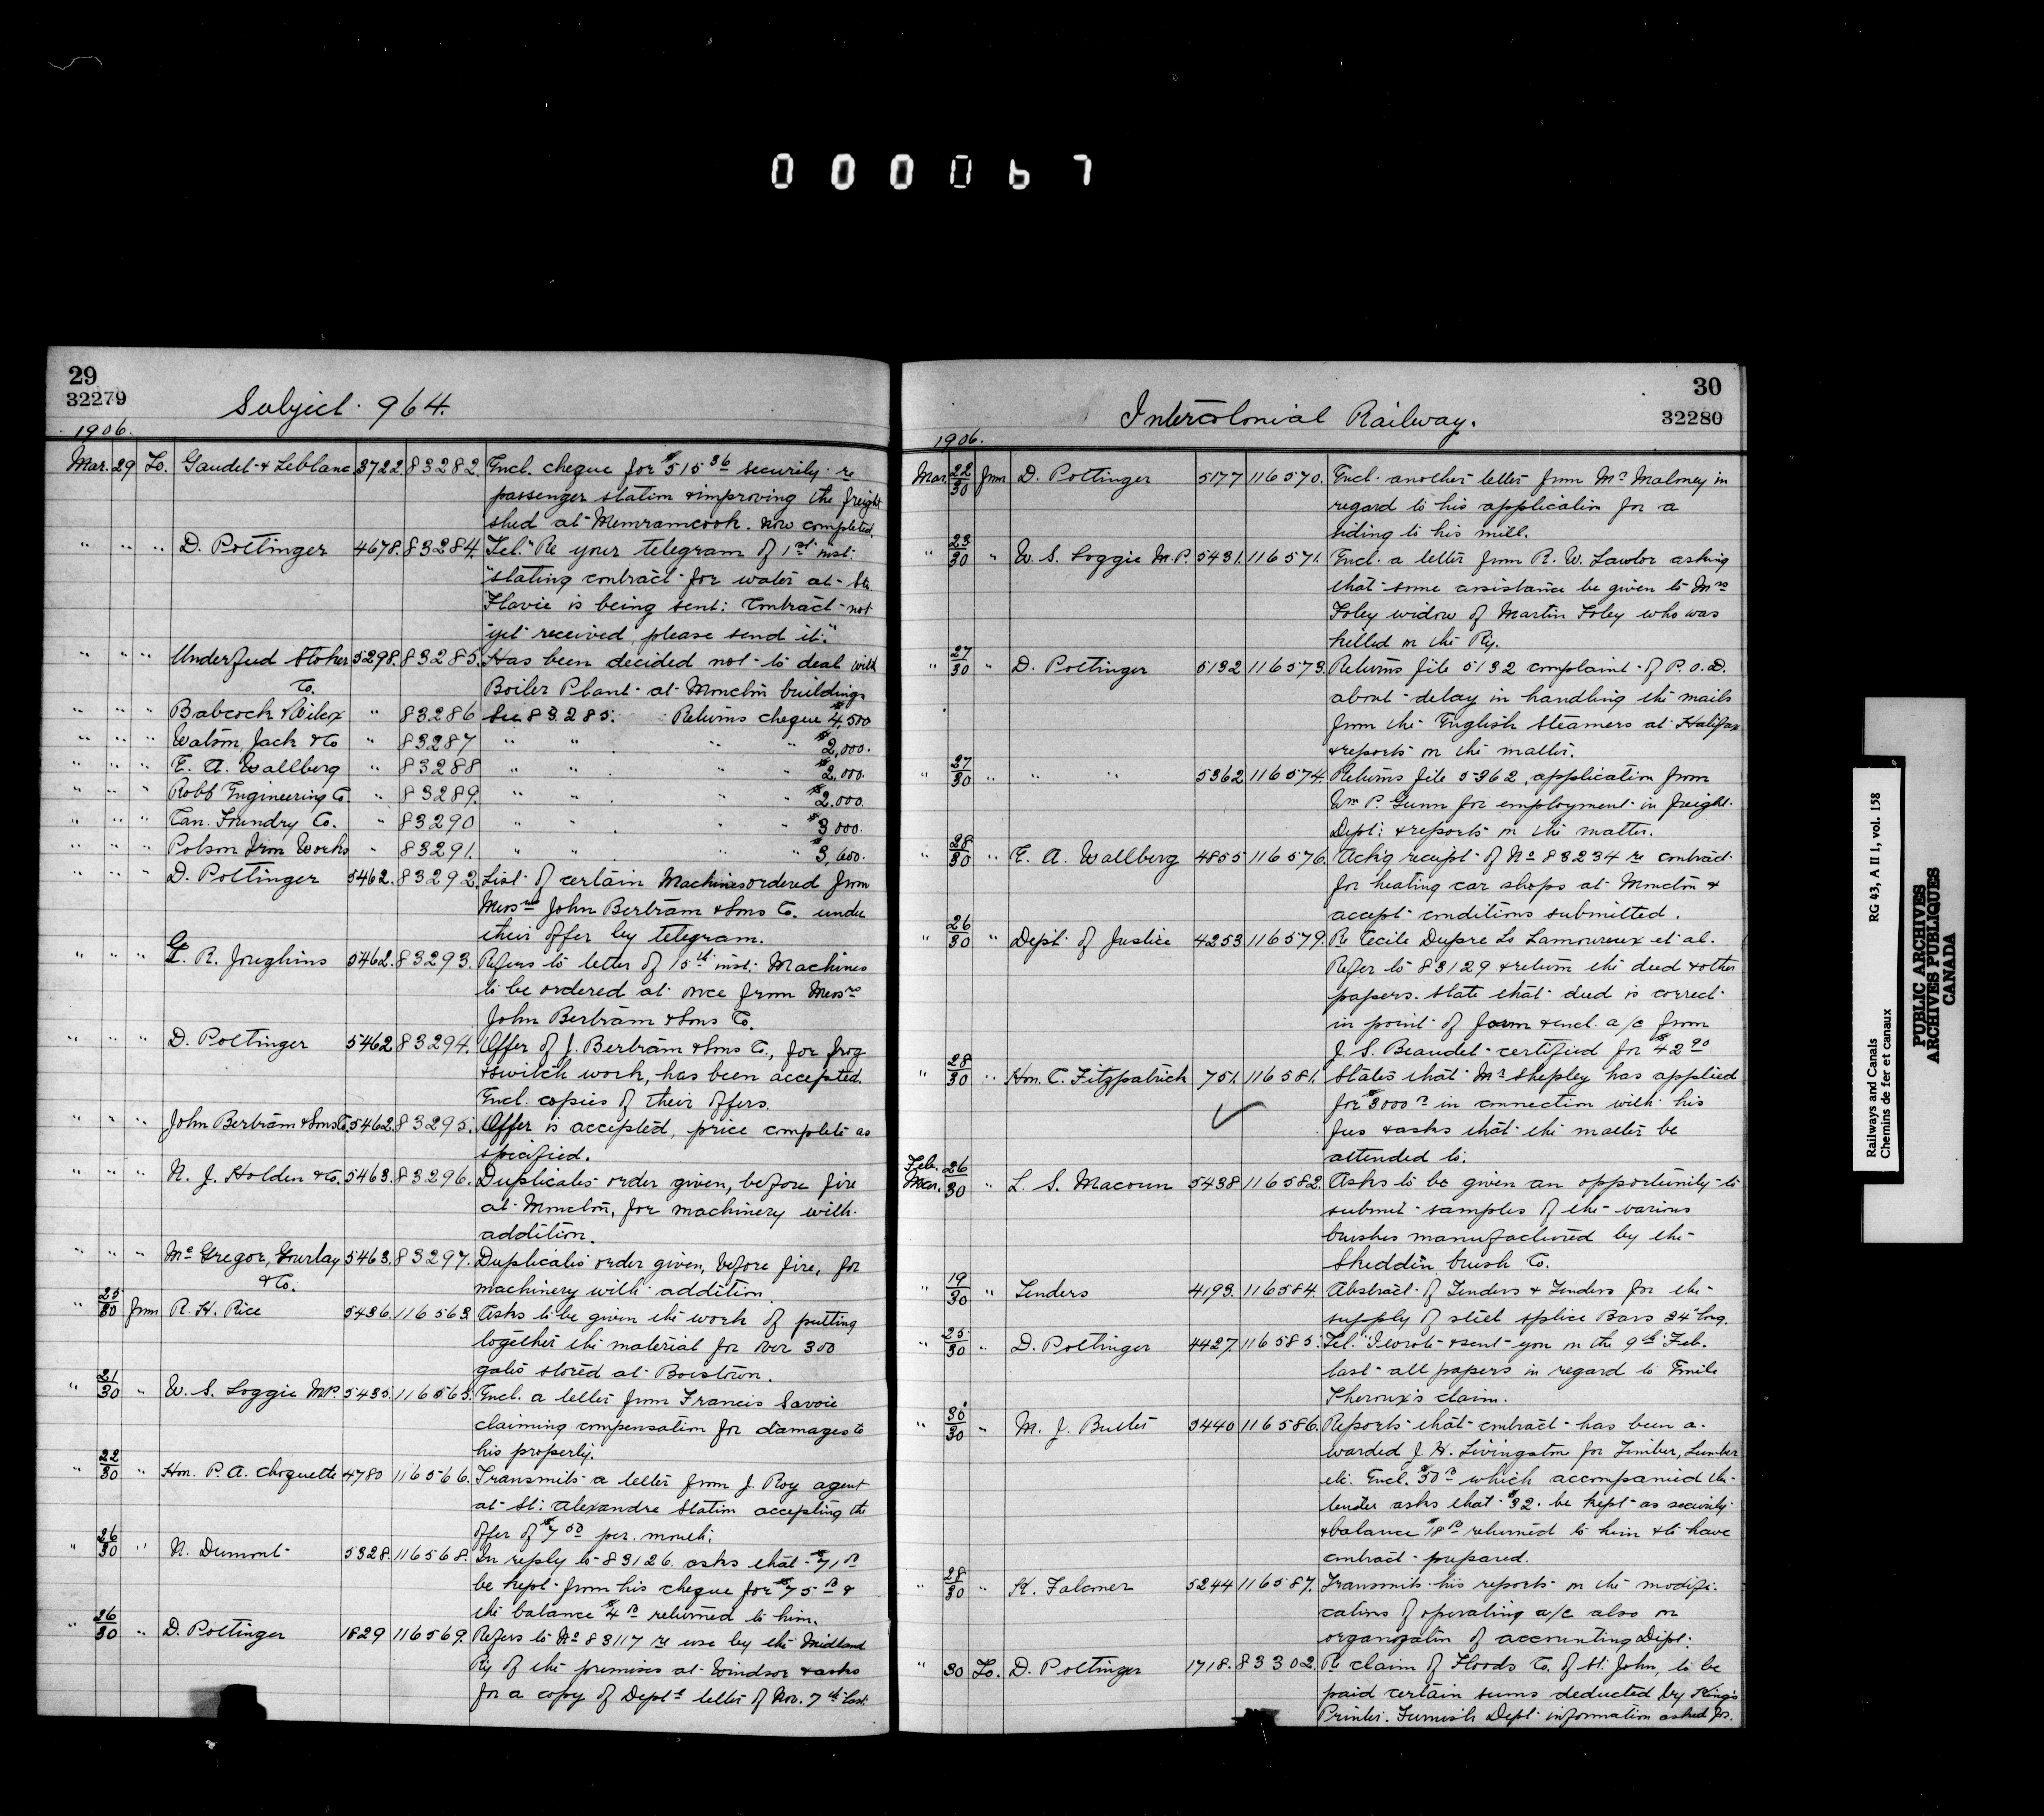 000067
29
32279
Subject 964.
1906.
Mar. 29 To. Gaudet & Leblanc 3722. 83282. Encl. cheque for $515 36 security re
passenger station & improving the freight
shed at Memramcook. now completed.
" " " D. Pottinger 4678. 83284. Tel. "Re your telegram of 1st inst.
"stating contract for water at Ste.
"Flavie is being sent: Contract not
"yet received, please send it."
" " " Underfeed Stoker 5298. 83285. Has been decided not to deal with
Co. Boiler Plant at Moncton buildings
" " " Babcock & Wilcox " 83286 See 83285. Returns cheque $4,500
" " " Watson, Jack & Co " 83287 " " " " $2,000.
" " " E. A. Wallberg " 83288 " " " " $2,000.
" " " Robb Engineering Co. " 83289. " " " " $2.000.
" " " Can. Foundry Co. " 83290 " " " " $3.000.
" " " Polson Iron Works " 83291. " " " " $3,600.
" " " D. Pottinger 5462. 83292. List of certain Machines ordered from
Messrs John Bertram & Sons Co. under
their offer by telegram.
" " " G. R. Joughins 5462. 83293. Refers to letter of 15th inst. Machines
to be ordered at once from Messrs
John Bertram & Sons Co.
" " " D. Pottinger 5462 83294. Offer of J. Bertram & Sons Co., for frog
& switch work, has been accepted.
Encl. copies of their offers.
" " " John Bertram & Sons Co. 5462. 83295. Offer is accepted, price complete as
specified.
" " " N. J. Holden & Co. 5463. 83296. Duplicates order given, before fire
at Moncton, for machinery with
addition.
" " " McGregor, Gourlay 5463. 83297. Duplicates order given, before fire, for
& Co. machinery with addition.
" 25/30 from R. H. Rice 5436. 116563. Asks to be given the work of putting
together the material for over 300
gates stored at Boiestown.
" 21/30 " W. S. Loggie M.P. 5435. 116565. Encl. a letter from Francis Savoie
claiming compensation for damages to
his property.
" 22/30 " Hon. P. A. Choquette 4780 116566. Transmits a letter from J. Roy agent
at St. Alexandre Station accepting the
offer of $7 50 per. month.
" 26/30 " N. Dumont 5328. 116568. In reply to 83126. asks that $71 00
be kept from his cheque for $75 00 &
the balance $4 00 returned to him.
" 26/30 " D. Pottinger 1829 116569. Refers to No 83117 re use by the Midland
Ry of the premises at Windsor & asks
for a copy of Dept's letter of Nov. 7th last.
30
32280
Intercolonial Railway.
1906.
Mar. 22/30 from D. Pottinger 5177 116570. Encl. another letter from Mr Maloney in
regard to his application for a
siding to his mill.
" 23/30 " W. S. Loggie M.P. 5431. 116571. Encl. a letter from R. W. Lawlor asking
that some assistance be given to Mrs
Foley widow of Martin Foley who was
killed on the Ry.
" 27/30 " D. Pottinger 5132 116573. Returns file 5132 complaint of P.O.D.
about delay in handling the mails
from the English steamers at Halifax
& reports on the matter.
" 27/30 " " " 5362 116574. Returns file 5362, application from
Wm P. Gunn for employment in freight
Dept. & reports on the matter.
" 28/30 " E. A. Wallberg 4855 116576. Ack'g receipt of No 83234 re contract
for heating car shops at Moncton &
accept conditions submitted.
" 26/30 " Dept. of Justice 4253 116579. Re Cecile Dupre to Lamoureux et al.
Refer to 83129 & return the deed & other
papers. State that deed is correct
in point of form & encl. a/c from
J. S. Beaudet certified for $42 90
" 28/30 " Hon. C. Fitzpatrick 751. 116581. States that Mr Shepley has applied
for $3000 00 in connection with his
fees & asks that the matter be
attended to.
Feb. 26
Mar. 30 " L. S. Macoun 5438 116582. Asks to be given an opportunity to
submit samples of the various
brushes manufactured by the
Sheddin brush Co.
" 19/30 " Tenders 4193. 116584. Abstract of Tenders & Tenders for the
supply of steel splice Bars 24" long.
" 25/30 " D. Pottinger 4427. 116585. Tel. "I wrote & sent you on the 9th Feb.
last all papers in regard to Emile
Theroux's claim.
" 30/30 " M. J. Butler 5440 116586. Reports that contract has been a-
warded J. H. Livingstone for Timber, Lumber
etc. Encl. $50 00 which accompanied the
tender asks that $32. be kept as security
& balance $18 00 returned to him & to have
contract prepared.
" 28/30 " K. Falconer 5244 116587. Transmits his reports on the modifi-
cations of operating a/c also on
organization of accounting Dept.
" 30 To. D. Pottinger 1718. 83302. Re claim of Floods Co. of St. John, to be
paid certain sums deducted by King's
Printer. Furnish Dept. information asked for.
Railways and Canals
Chemins de fer et canaux
RG 43, A II 1, vol. 158
PUBLIC ARCHIVES
ARCHIVES PUBLIQUES
CANADA